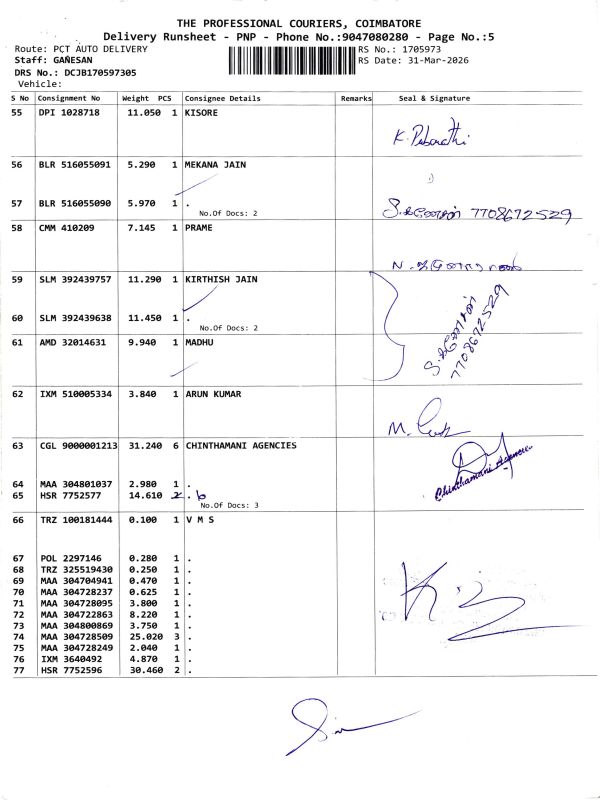 THE PROFESSIONAL COURIERS, COIMBATORE
Delivery Runsheet - PNP - Phone No.:9047080280 - Page No.:5
Route: PCT AUTO DELIVERY RS No.: 1705973
Staff: GANESAN RS Date: 31-Mar-2026
DRS No.: DCJB170597305
Vehicle:
S No Consignment No Weight PCS Consignee Details Remarks Seal & Signature
55 DPI 1028718 11.050 1 KISORE
56 BLR 516055091 5.290 1 MEKANA JAIN
57 BLR 516055090 5.970 1 .
No.Of Docs: 2 7708672529
58 CMM 410209 7.145 1 PRAME
59 SLM 392439757 11.290 1 KIRTHISH JAIN
60 SLM 392439638 11.450 1 .
No.Of Docs: 2
7708672529
61 AMD 32014631 9.940 1 MADHU
62 IXM 510005334 3.840 1 ARUN KUMAR
63 CGL 9000001213 31.240 6 CHINTHAMANI AGENCIES
Chinthamani Agencies
64 MAA 304801037 2.980 1 .
65 HSR 7752577 14.610 2 .
No.Of Docs: 3
66 TRZ 100181444 0.100 1 V M S
67 POL 2297146 0.280 1 .
68 TRZ 325519430 0.250 1 .
69 MAA 304704941 0.470 1 .
70 MAA 304728237 0.625 1 .
71 MAA 304728095 3.800 1 .
72 MAA 304722863 8.220 1 .
73 MAA 304800869 3.750 1 .
74 MAA 304728509 25.020 3 .
75 MAA 304728249 2.040 1 .
76 IXM 3640492 4.870 1 .
77 HSR 7752596 30.460 2 .